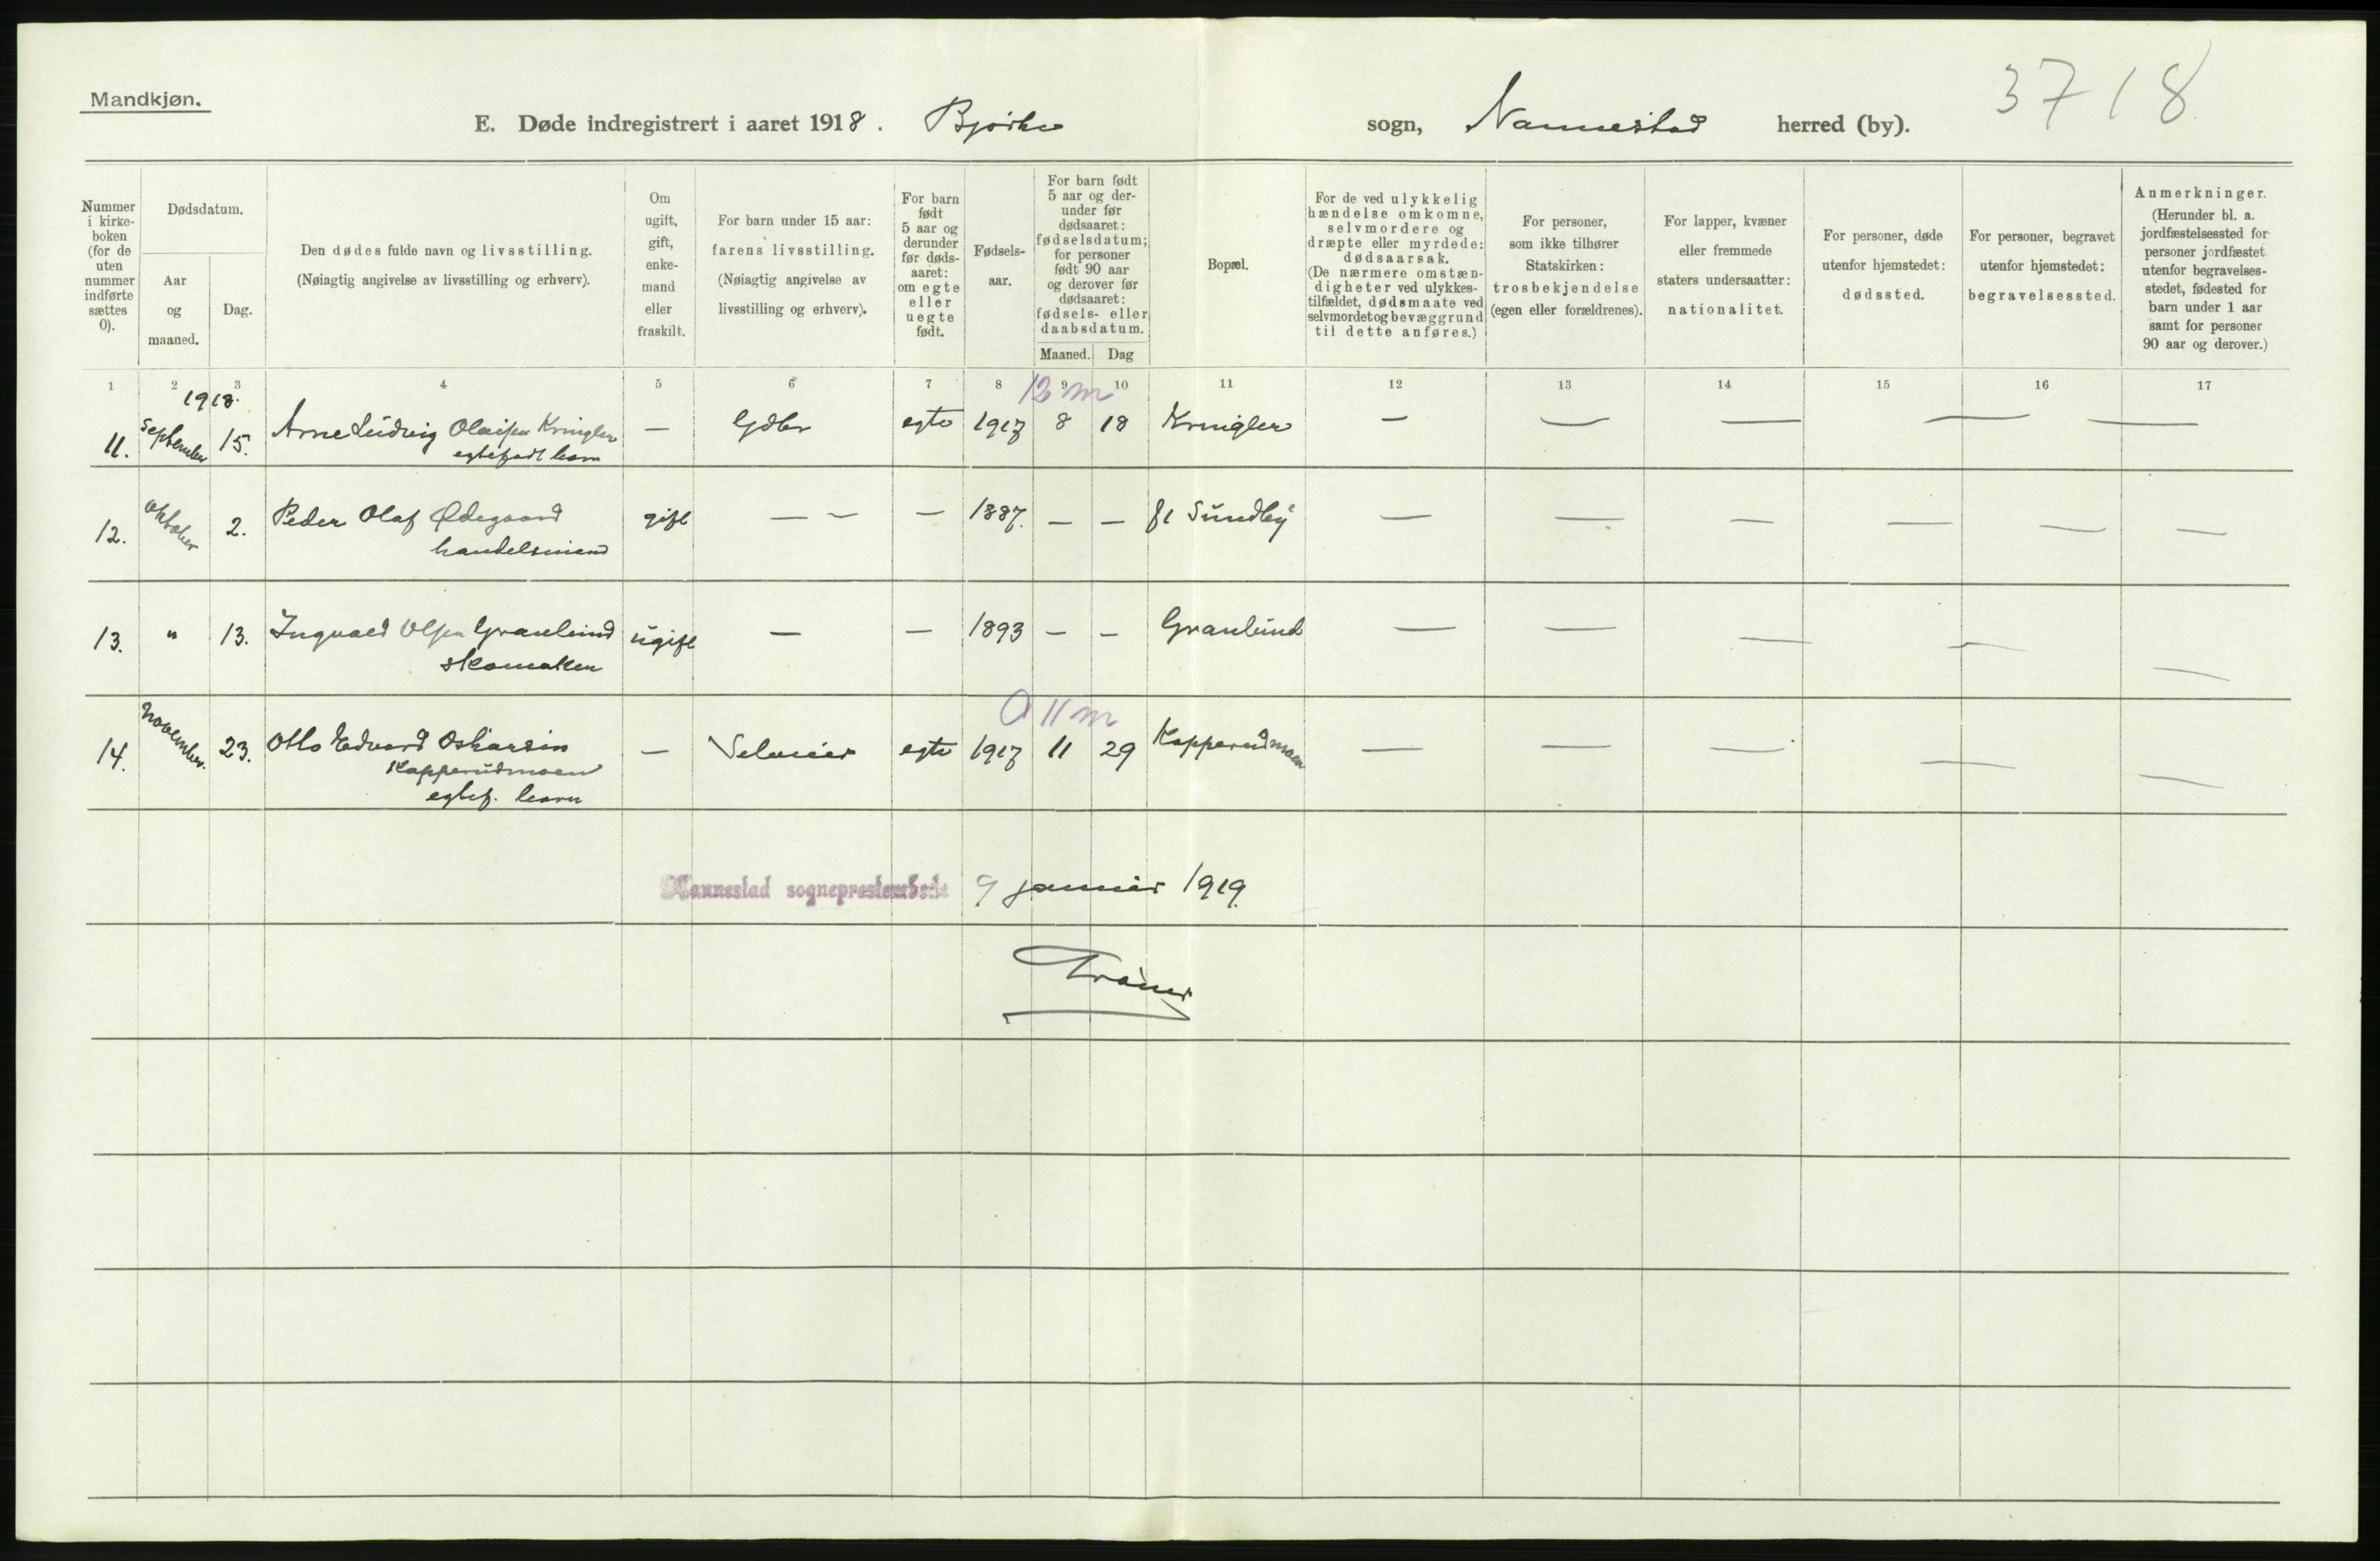 Mandkjøn.
3718
E. Døde indregistrert i aaret 1918. Bjørke sogn, Nannestad herred (by).
Nummer i kirkeboken (for de uten nummer indførte sættes 0).
Dødsdatum.
Aar og maaned.
Dag.
Den dødes fulde navn og livsstilling.
(Nøiagtig angivelse av livsstilling og erhverv).
Om ugift, gift, enkemand eller fraskilt.
For barn under 15 aar: farens livsstilling.
(Nøiagtig angivelse av livsstilling og erhverv).
For barn født 5 aar og derunder før dødsaaret: om egte eller uegte født.
Fødselsaar.
For barn født 5 aar og derunder før dødsaaret: fødselsdatum; for personer født 90 aar og derover før dødsaaret: fødsels- eller daabsdatum.
Maaned. Dag
Bopæl.
For de ved ulykkelig hændelse omkomne, selvmordere og dræpte eller myrdede: dødsaarsak.
(De nærmere omstændigheter ved ulykkestilfældet, dødsmaate ved selvmordet og bevæggrund til dette anføres.)
For personer, som ikke tilhører Statskirken: trosbekjendelse (egen eller forældrenes).
For lapper, kvæner eller fremmede staters undersaatter: nationalitet.
For personer, døde utenfor hjemstedet: dødssted.
For personer, begravet utenfor hjemstedet: begravelsessted.
Anmerkninger.
(Herunder bl. a. jordfæstelsessted for personer jordfæstet utenfor begravelsesstedet, fødested for barn under 1 aar samt for personer 90 aar og derover.)
1 2 3 4 5 6 7 8 9 10 11 12 13 14 15 16 17
1918. 12 m
11. September 15. Arne Ludvig Olaisen Kringler — Gdbr egte 1917 8 18 Kringler — — — — —
egtefødt barn
12. Oktober 2. Peder Olaf Ødegaard gift — — — 1887. — — Sundby — — — — — —
handelsmand
13. " 13. Ingvald Olsen Granlund ugift — — 1893 — — Granlund — — — — —
skomaker
0 11 m
14. November. 23. Otto Edvard Oskarsen — egte 1917 11 29 Kopperudmoen — — — — —
Kopperudmoen
egtef. barn
Nannestad sogneprestembede 9 januar 1919.